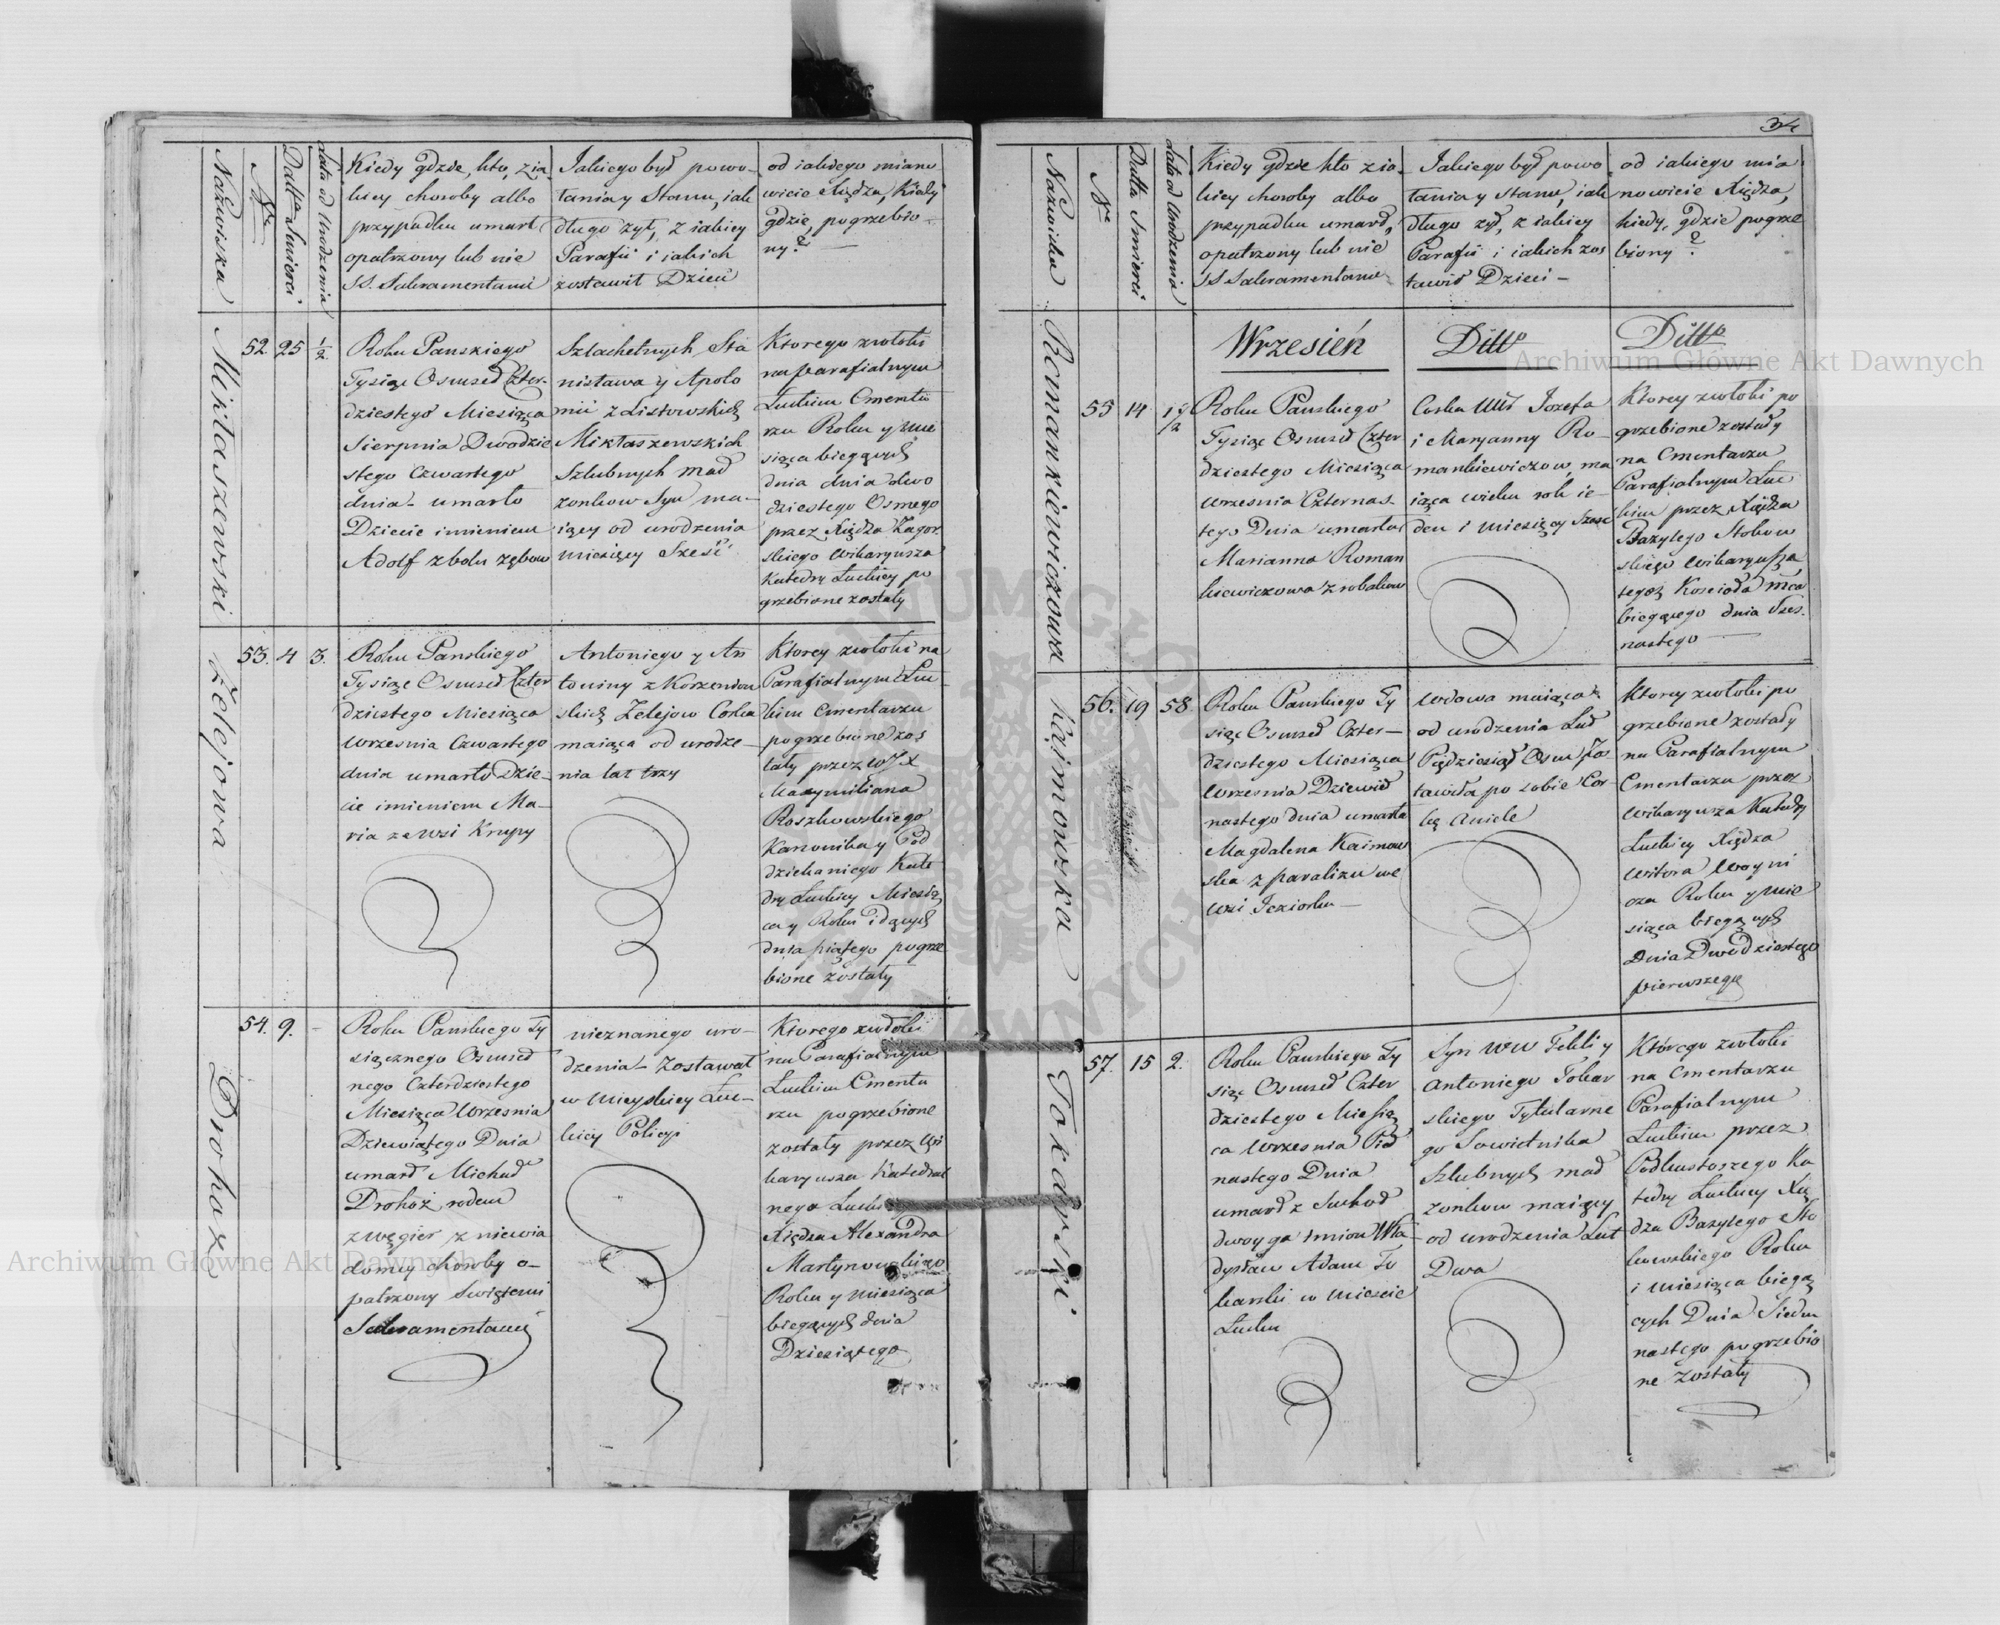 34
Nazwiska
Nr
Datta Smierci
Lata od Urodzenia
Kiedy gdzie, kto, zia
kiey choroby albo
przypadku umarł
opatrzony lub nie
SS. Sakramentami
Jakiego był powo-
łania y Stanu, iak
długo żył, z iakiey
Parafii i iakich
zostawił Dzieci
od iakiego miano
wicie Xiędza, Kiedy
gdzie, pogrzebio-
ny?
Mikłaszewski
52. 25 1/2.
Roku Panskiego
Tysiąc Osmset Czter-
dziestego Miesiąca
Sierpnia Dwodzie
stego Czwartego
dnia umarło
Dziecie imieniem
Adolf z bolu zębow
Szlachetnych Sta
nisława y Apolo
nii z Listowskich
Mikłaszewskich
Szlubnych mał
zonkow Syn ma-
iący od urodzenia
miesięcy Sześć
Ktorego zwłoki
na parafialnym
Łuckim Cmenta
rzu Roku y mie
siąca biegących
dnia dnia dwo
dziestego Osmego
przez Xiędza Zagor
skiego Wikaryusza
Katedry Łuckiey po
grzebione zostały
Zelejowa
53. 4 3.
Roku Panskiego
Tysiąc Osmset Czter
dziestego Miesiąca
Wrzesnia Czwartego
dnia umarło Dzie-
cie imieniem Ma-
ria ze Wsi Krupy
Antoniego y An
toniny z Korzeniow
skich Zelejow Corka
maiąca od urodze-
nia lat trzy
Ktorey zwłoki na
Parafialnym Łuc
kim Cmentarzu
pogrzebione zos
tały przez WJX
Maxymiliana
Roszkowskiego
Kanonika y Pod
dziekaniego Kate
dry Łuckiey Miesią
ca y Roku idących
dnia piątego pogrze
bione zostały
Drohoz
54. 9. -
Roku Panskiego Ty
siącznego Osmset
nego Czterdziestego
Miesiąca Wrzesnia
Dziewiątego Dnia
umarł Michał
Drohoż rodem
z Węgier z niewia
domey choroby o-
patrzony Swiętemi
Sakramentami
nieznanego uro-
dzenia zostawał
w mieyskiey Łuc-
kiey Policyi
Ktorego zwłoki
na Parafialnym
Łuckim Cmenta
rzu pogrzebione
zostały przez Wi
karyusza Katedral
nego
Xiędza Alexandra
Martynowskiego
Roku y miesiąca
biegących dnia
Dziesiątego
Nazwiska
Nr
Datta Smierci
Lata od Urodzenia
Kiedy gdzie kto z ia
kiey choroby albo
przypadku umarł,
opatrzony lub nie
SS Sakramentami
Jakiego był powo
łania y stanu, iak
długo żył, z iakiey
Parafii i iakich zos
tawił Dzieci -
od iakiego mia
nowicie Xiędza,
kiedy, gdzie pogrze
biony?
Wrzesień Ditto Ditto
Romankiewiczowa
55 14 1 1/2
Roku Panskiego
Tysiąc Osmset Czter
dziestego Miesiąca
Wrzesnia Czternas-
tego Dnia umarła
Marianna Roman
kiewiczowa z robakow
Corka Józefa
i Maryanny Ro-
mankiewiczow ma
iąca wieku rok ie-
den i miesięcy szesc
Ktorey zwłoki po
grzebione zostały
na Cmentarzu
Parafialnym Łuc
kim przez Xiędza
Bazylego Stobow
skiego Wikaryusza
tegoż Kościoła mca
biegącego dnia Szes-
nastego
Kaimowska
56. 19 58
Roku Panskiego Ty
siąc Osmset Czter-
dziestego Miesiąca
Wrzesnia Dziewięt
nastego dnia umarła
Magdalena Kaimow
ska z paraliżu we
Wsi Jeziorku
Wdowa maiąca
od urodzenia Lat
Pięćdziesiąt Osm Zos
tawiła po sobie Cor
kę Aniele
Ktorey zwłoki po
grzebione zostały
na Parafialnym
Cmentarzu przez
Wikaryusza Katedry
Łuckiey Xiędza
Witora Woyni
cza Roku y mie
siąca biegących
Dnia Dwudziestego
pierwszego
Tokarski
57. 15 2.
Roku Panskiego Ty
siąc Osmset Czter
dziestego Miesią
ca Wrzesnia Pięt
nastego Dnia
umarł z Suchot
dwoyga imion Wła
dysław Adam To
karski w Miescie
Łucku
Syn WW Tekli y
Antoniego Tokar
skiego Tytularne
go Sowietnika
Szlubnych mał
zonkow maiący
od urodzenia Lat
Dwa
Ktorego zwłoki
na Cmentarzu
Parafialnym
Łuckim przez
Podkustoszego Ka
tedry Łuckiey Xię
dza Bazylego Sto
bowskiego Roku
i miesiąca biegą
cych Dnia Siedm
nastego pogrzebio
ne zostały
Archiwum Główne Akt Dawnych
Archiwum Główne Akt Dawnych